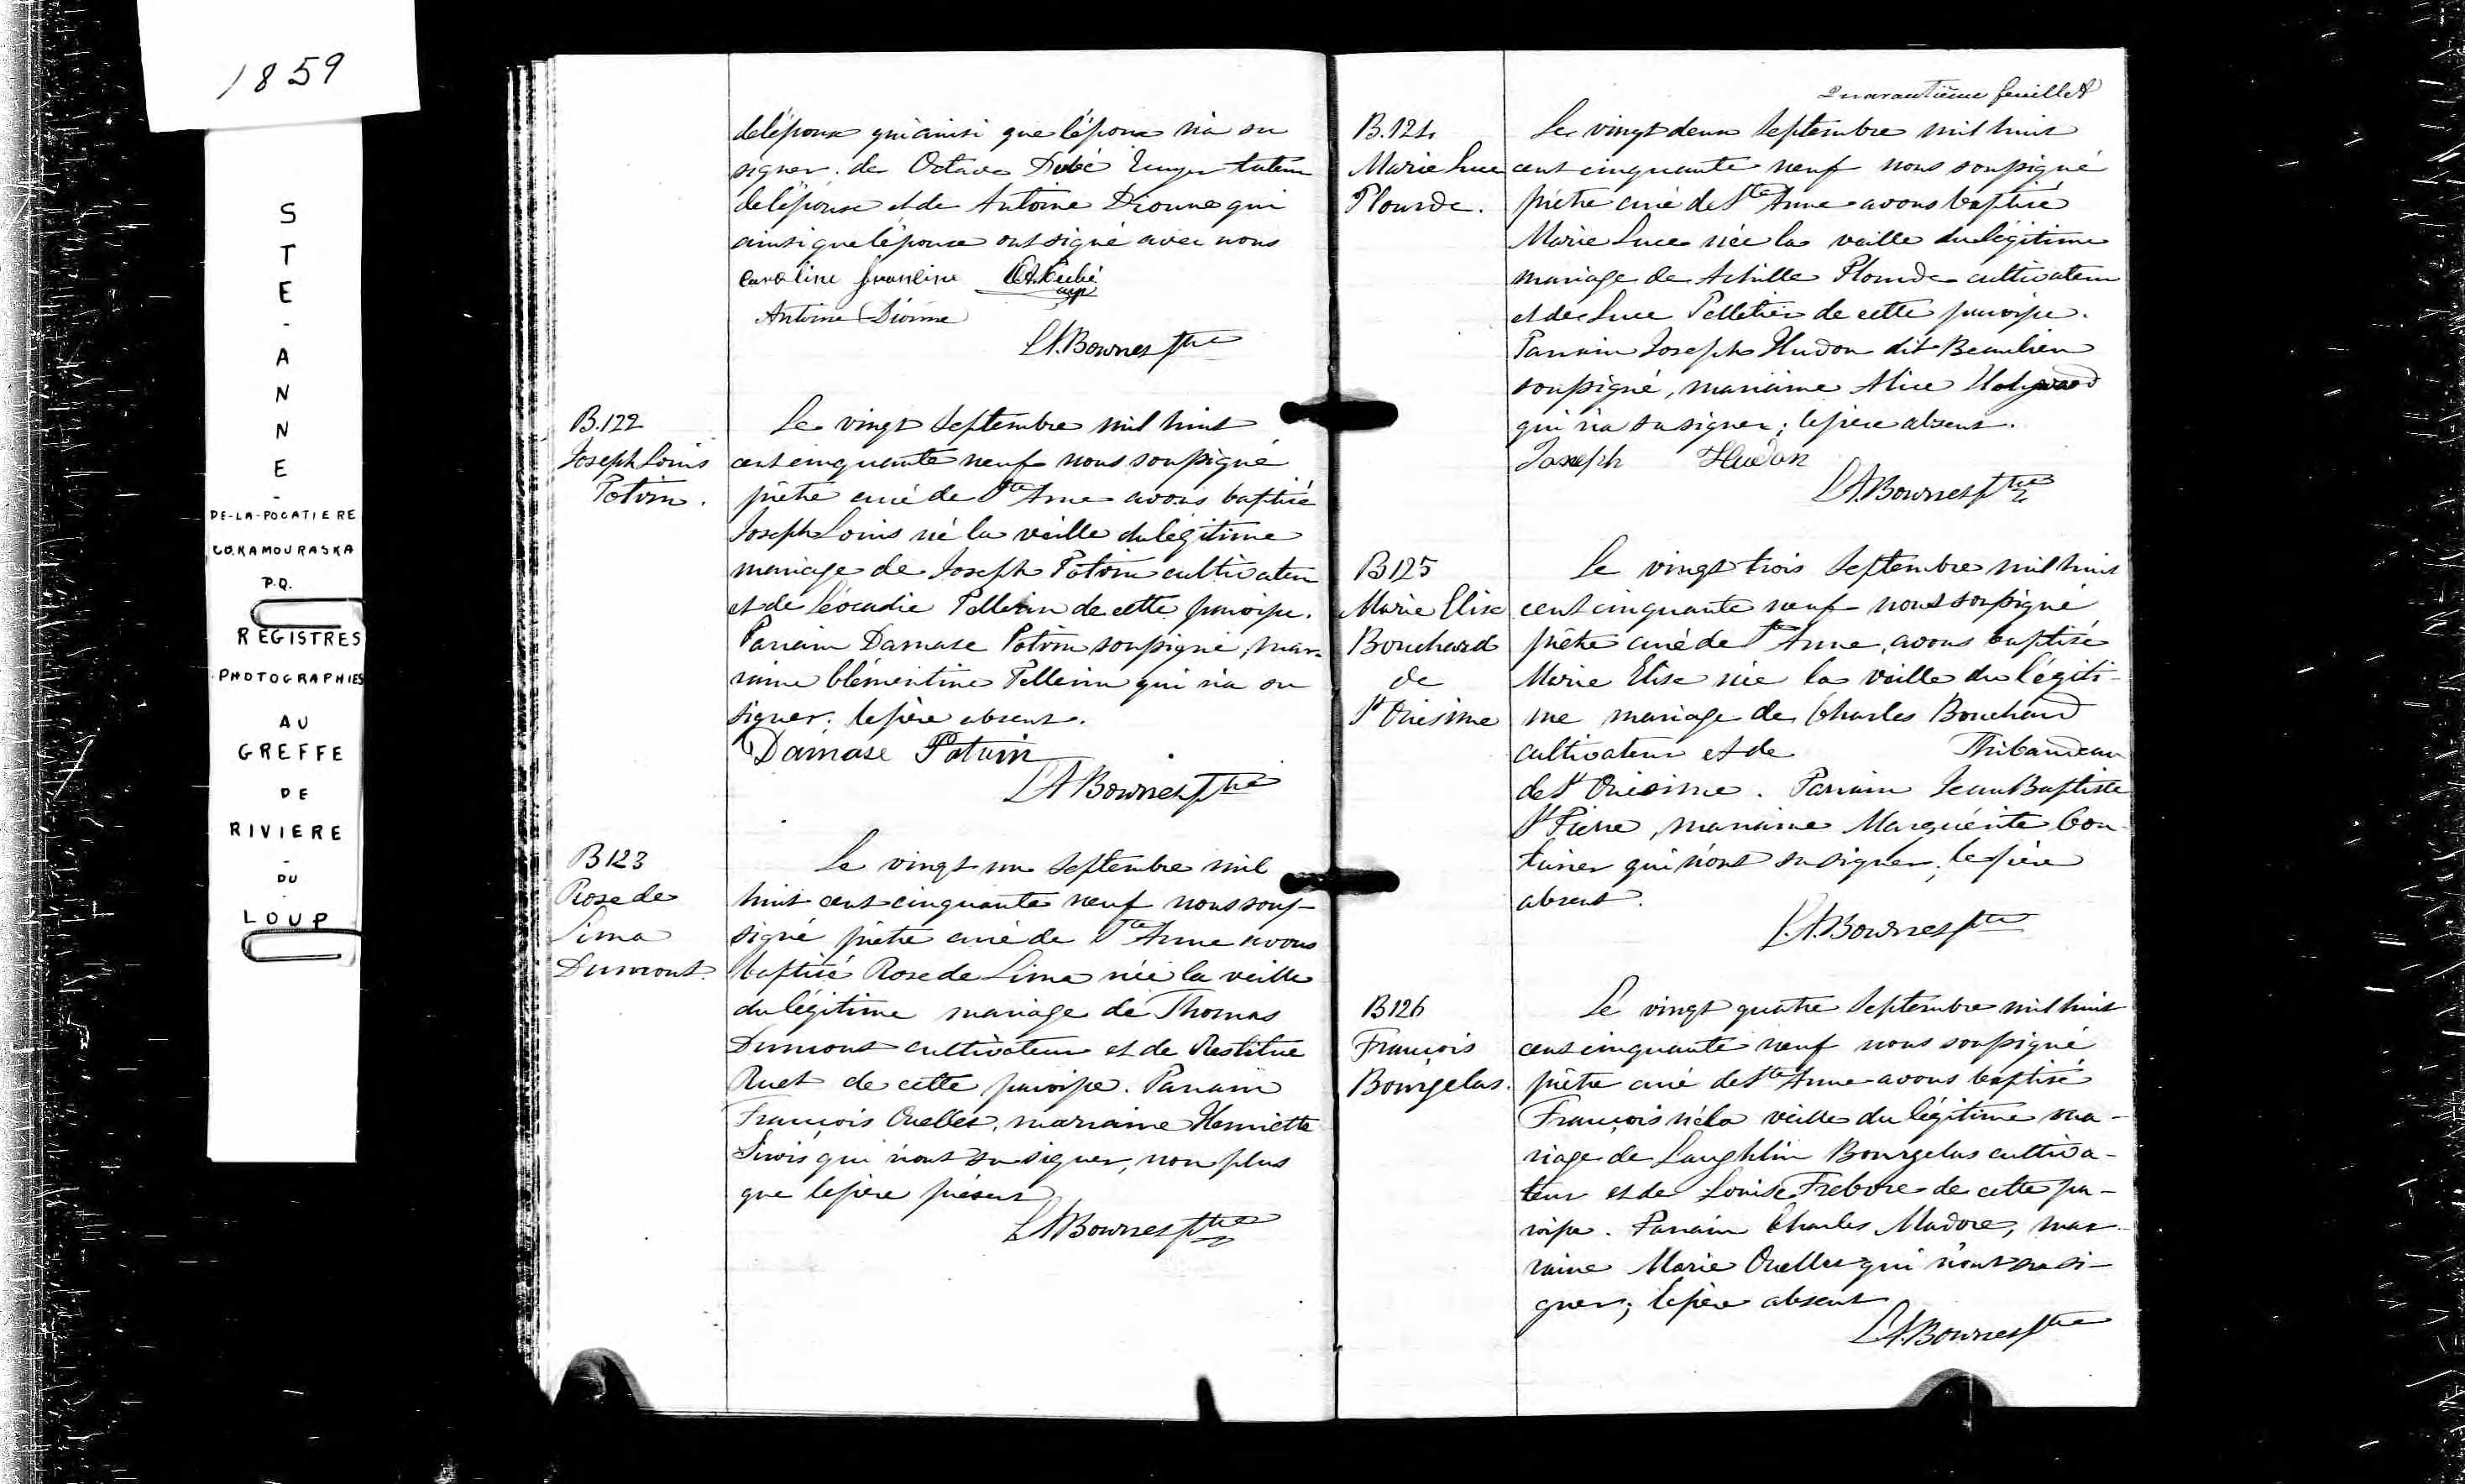 1859
STE-ANNE-
DE-LA-POCATIERE
CO.KAMOURASKA
P.Q.
REGISTRES
PHOTOGRAPHIES
AU
GREFFE
DE
RIVIERE
-
DU
-
LOUP
de l'épouse qui ainsi que l'époux n'a su
signer. de Octave Dubé Ecuyer tuteur
de l'épouse et de Antoine Dionne qui
ainsi que l'épouse ont signé avec nous
Caroline
Antoine Dionne
L.A. Bourret Ptre
B.122
Joseph Louis
Potvin.
Le vingt Septembre mil huit
cent cinquante neuf nous soussigné
prêtre curé de Ste Anne avons baptisé
Joseph Louis né la veille du légitime
mariage de Joseph Potvin cultivateur
et de Léocadie Pellerin de cette paroisse.
Parrain Damase Potvin soussigné, mar-
raine Clémentine Pellerin qui n'a su
signer; le père absent.
Damase Potvin
L A Bourret Ptre
B123
Rose de
Lima
Dumont.
Le vingt un Septembre mil
huit cent cinquante neuf nous sous-
signé prêtre curé de Ste Anne avons
baptisé Rose de Lima née la veille
du légitime mariage de Thomas
Dumont cultivateur et de Restitue
Ruet de cette paroisse. Parrain
François Ouellet, marraine Henriette
Sirois qui n'ont su signer, non plus
que le père présent
L A Bourret Ptre
Quarantième feuillet
B.124
Marie Luce
Plourde.
Le vingt deux Septembre mil huit
cent cinquante neuf nous soussigné
prêtre curé de Ste Anne avons baptisé
Marie Luce née la veille du légitime
mariage de Achille Plourde cultivateur
et de Luce Pelletier de cette paroisse.
Parrain Joseph Hudon dit Beaulieu
soussigné, marraine Alice
qui n'a su signer; le père absent.
Joseph Hudon
L A. Bourret Ptre
B125
Marie Elise
Bouchard
de
St Onésime
Le vingt trois Septembre mil huit
cent cinquante neuf nous soussigné
prêtre curé de Ste Anne, avons baptisé
Marie Elise née la veille du légiti-
me mariage de Charles Bouchard
cultivateur et de Thibaudeau
de St Onésime. Parrain Jean Baptiste
St Pierre, marraine Marguérite Cou-
turier qui n'ont su signer; le père
absent.
L.A. Bourret Ptre
B126
François
Bourgelas.
Le vingt quatre Septembre mil huit
cent cinquante neuf nous soussigné
prêtre curé de Ste Anne avons baptisé
François né la veille du légitime ma-
riage de Laughlin Bourgelas cultiva-
teur et de Louise Frebore de cette pa-
roisse. Parrain Charles Madore, mar-
raine Marie Ouellet qui n'ont su si-
gner; le père absent
L A. Bourret Ptre